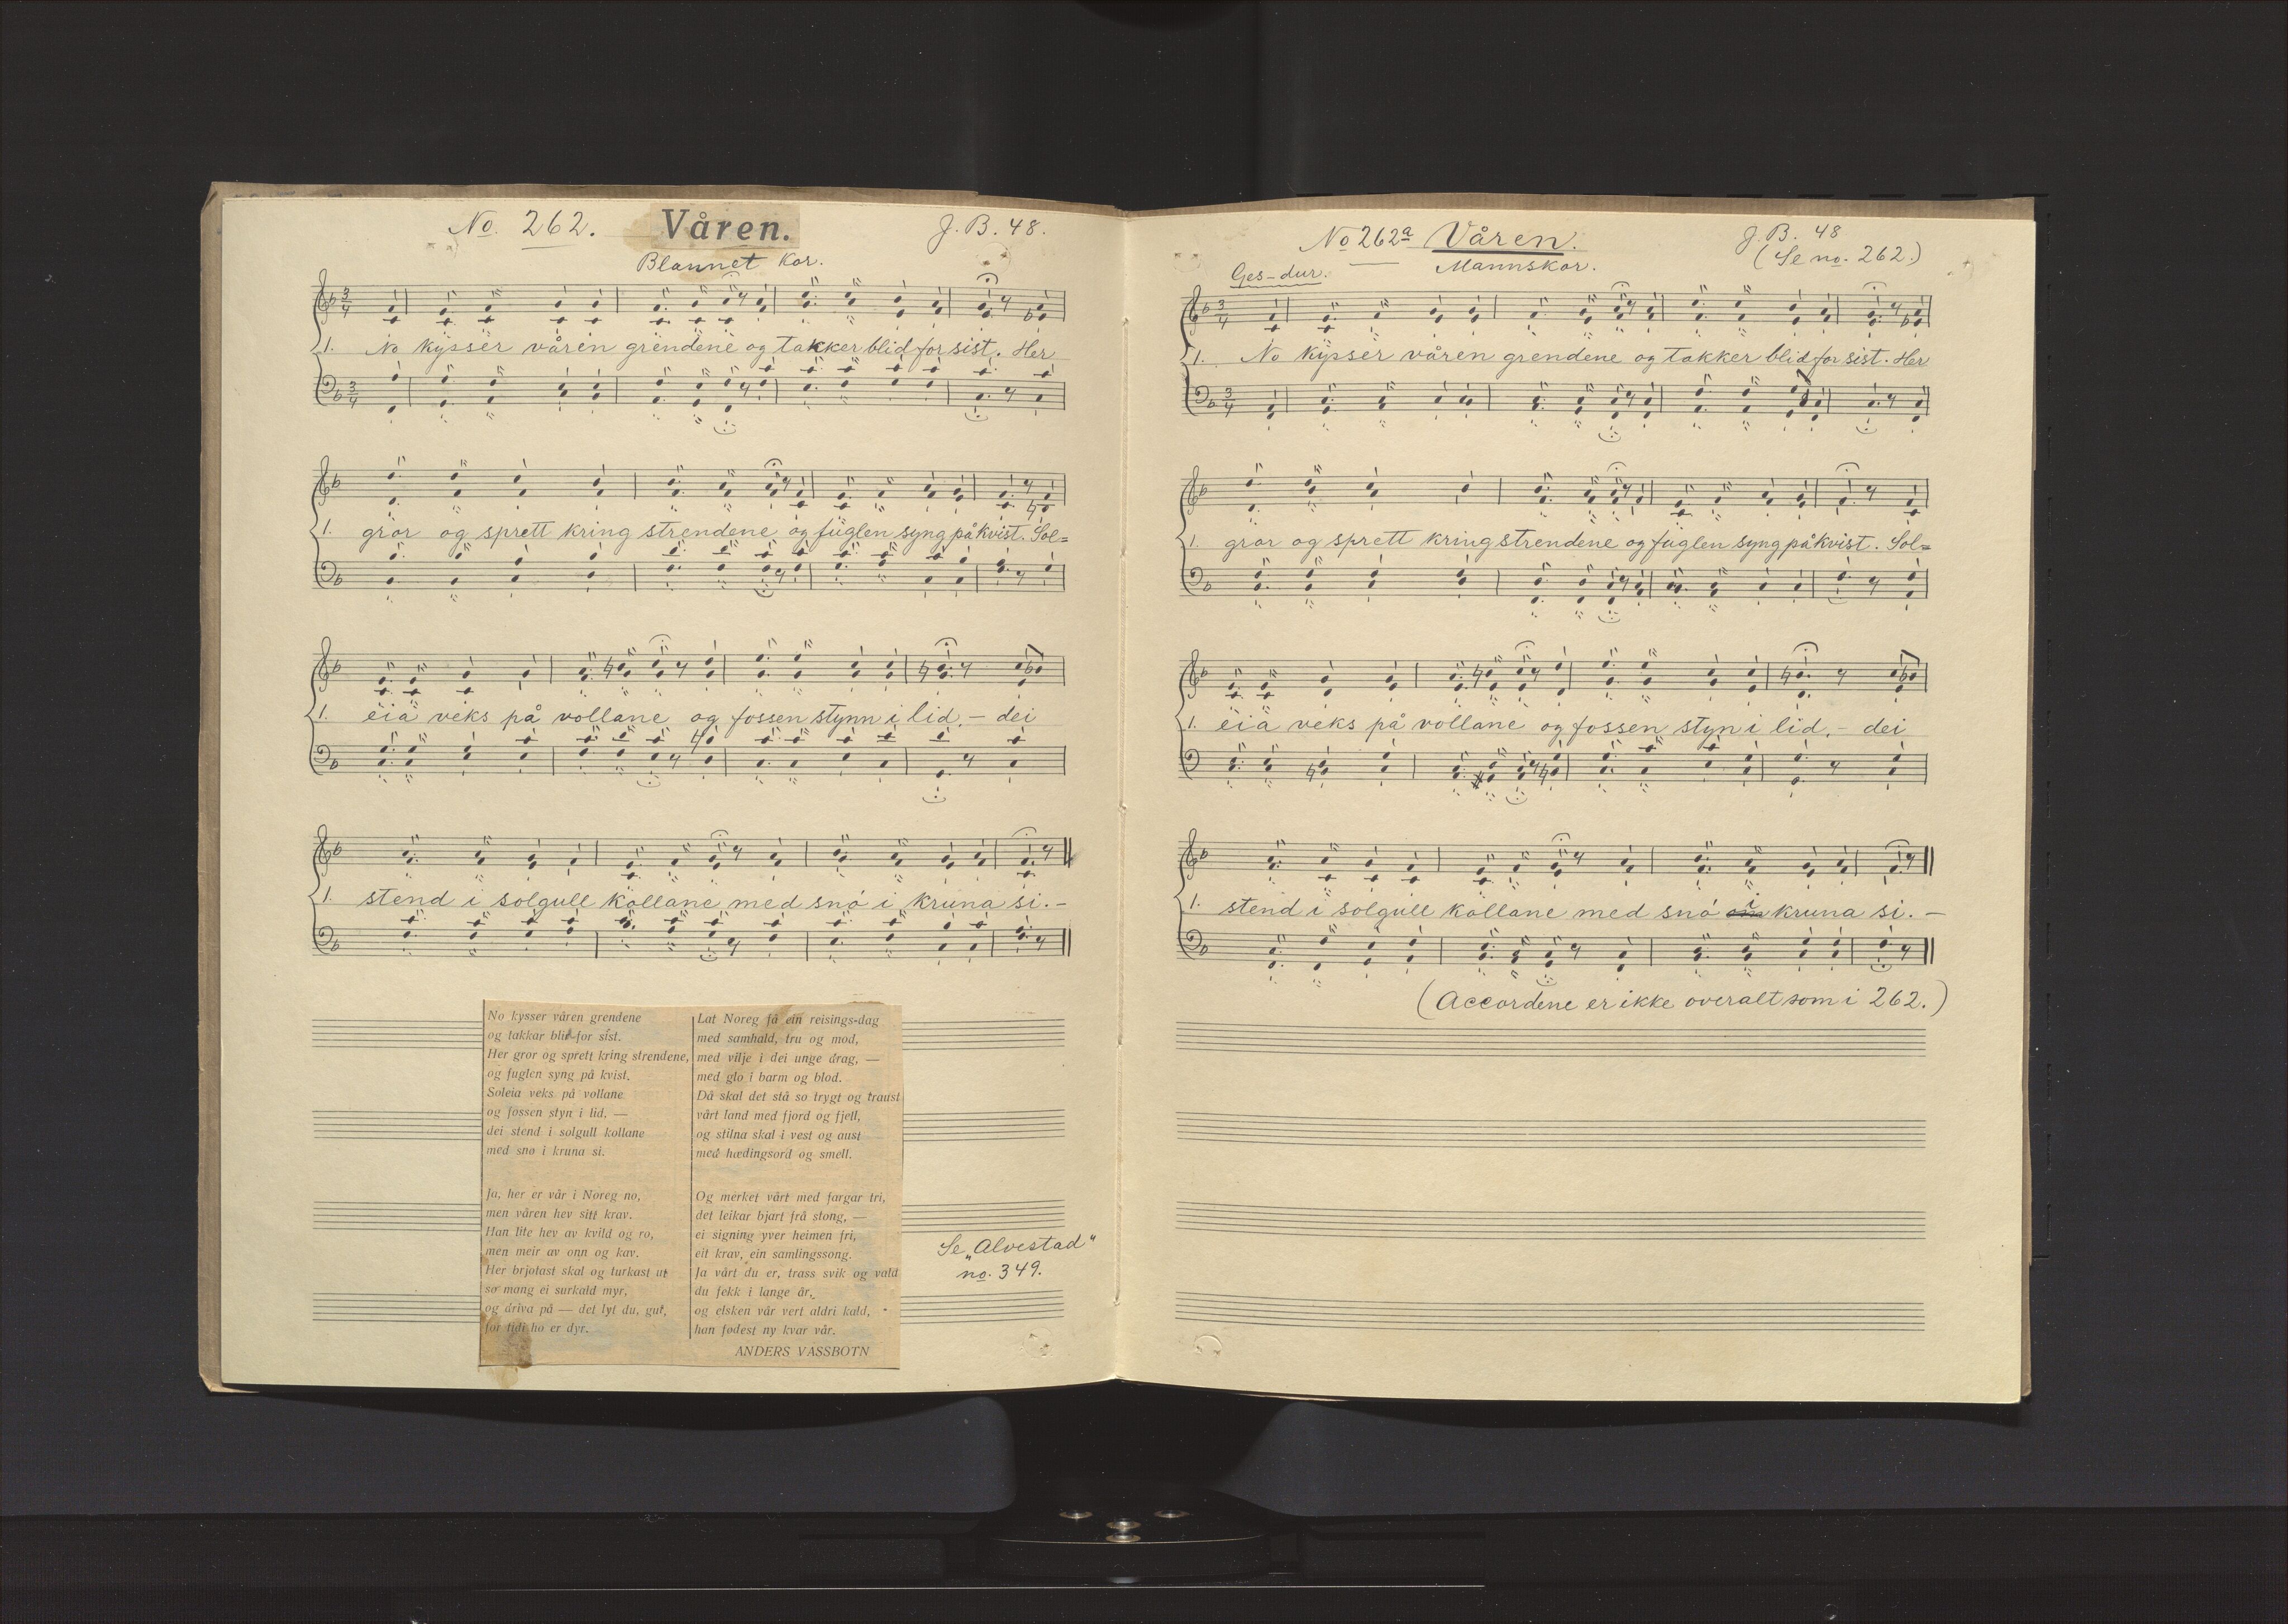 No. 262. Våren. J. B. 48.
Blannet Kor.
1. No kysser våren grendene og takker blid for sist. Her
1. gror og sprett kring strendene og fuglen syng på kvist. Sol=
1. eia veks på vollane og fossen stynn i lid, – dei
1. stend i solgull kollane med snø i kruna si. –
No kysser våren grendene
og takkar blid for sist.
Her gror og sprett kring strendene,
og fuglen syng på kvist.
Soleia veks på vollane
og fossen styn i lid, —
dei stend i solgull kollane
med snø i kruna si.
Ja, her er vår i Noreg no,
men våren hev sitt krav.
Han lite hev av kvild og ro,
men meir av onn og kav.
Her brjotast skal og turkast ut
so mang ei surkald myr,
og driva på — det lyt du, gut,
for tidi ho er dyr.
Lat Noreg få ein reisings-dag
med samhald, tru og mod,
med vilje i dei unge drag, —
med glo i barm og blod.
Då skal det stå so trygt og traust
vårt land med fjord og fjell,
og stilna skal i vest og aust
med hædingsord og smell.
Og merket vårt med fargar tri,
det leikar bjart frå stong, —
ei signing yver heimen fri,
eit krav, ein samlingssong.
Ja vårt du er, trass svik og vald
du fekk i lange år,
og elsken vår vert aldri kald,
han fødest ny kvar vår.
ANDERS VASSBOTN
Se „Alvestad"
no. 349.
No 262a Våren. J. B. 48
(Se no. 262.)
Ges-dur. Mannskor.
1. No kysser våren grendene og takker blid for sist. Her
1. gror og sprett kring strendene og fuglen syng på kvist. Sol=
1. eia veks på vollane og fossen styn i lid, – dei
1. stend i solgull kollane med snø i kruna si. –
(Accordene er ikke overalt som i 262.)